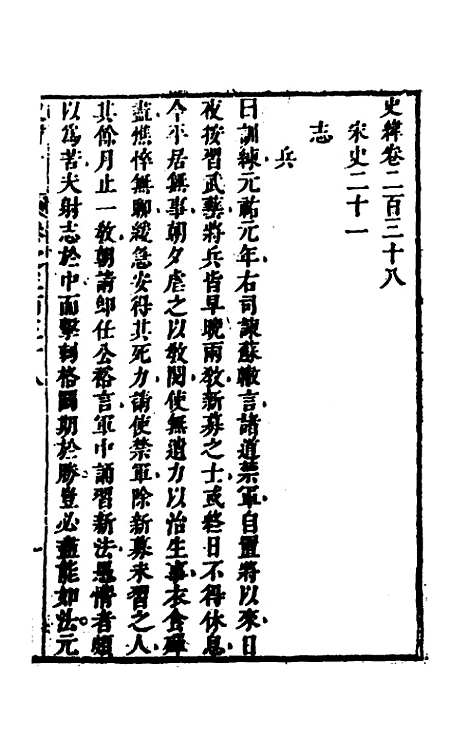 史緯卷二百三十八
宋史二十一
志
兵
曰訓練元祐元年右司諫蘇轍言諸道禁軍自置將以來日
夜按習武藝將兵皆早晚兩教新募之士或終日不得休息
今平居無事朝夕虐之以教閱使無遺力以治生事衣食殫
盡憔悴無聊緩急安得其死力請使禁軍除新募未習之人
其餘月止一教朝請郎任公裕言軍中誦習新法愚憜者頗
以為苦夫射志於中面擊刺格鬭期於勝豈必盡能如法元